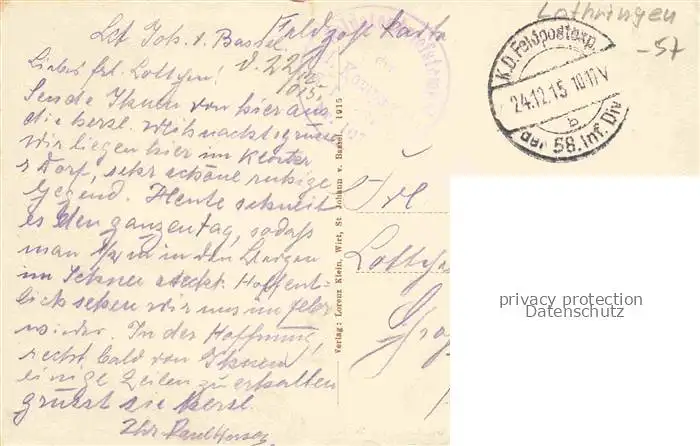 Lothringen
-57
Feldpostkarte
St. Joh. v. Bassel.
d. 22.
1915.
Liebes Frl. Lottchen!
Sende Ihnen von hier aus
die herzl. Weihnachtsgrüsse
wir liegen hier im Kloster
Dorf, sehr schöne ruhige
Gegend. Heute schneit
es den ganzen tag, sodass
man 1/2 m in den Bergen
im Schnee steckt. Hoffent-
lich sehen wir uns im
wieder. In der Hoffnung,
recht bald von Ihnen
einige Zeilen zu erhalten
grüsst sie herzl.
Ihr Paul
K.D. Feldpostexp.
24.12.15 10-11V
b
der 58. Inf. Div.
Verlag: Lorenz Klein, Wirt, St. Johann v. Bassel, 1915
Frl.
Lottchen
privacy protection
Datenschutz